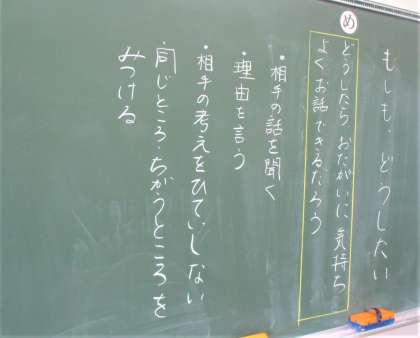 もしも、どうしたい
め
どうしたら おたがいに 気持ち
よく お話できるだろう
・相手の話を聞く
・理由を言う
・相手の考えをひていしない
・同じところ・ちがうところを
みつける